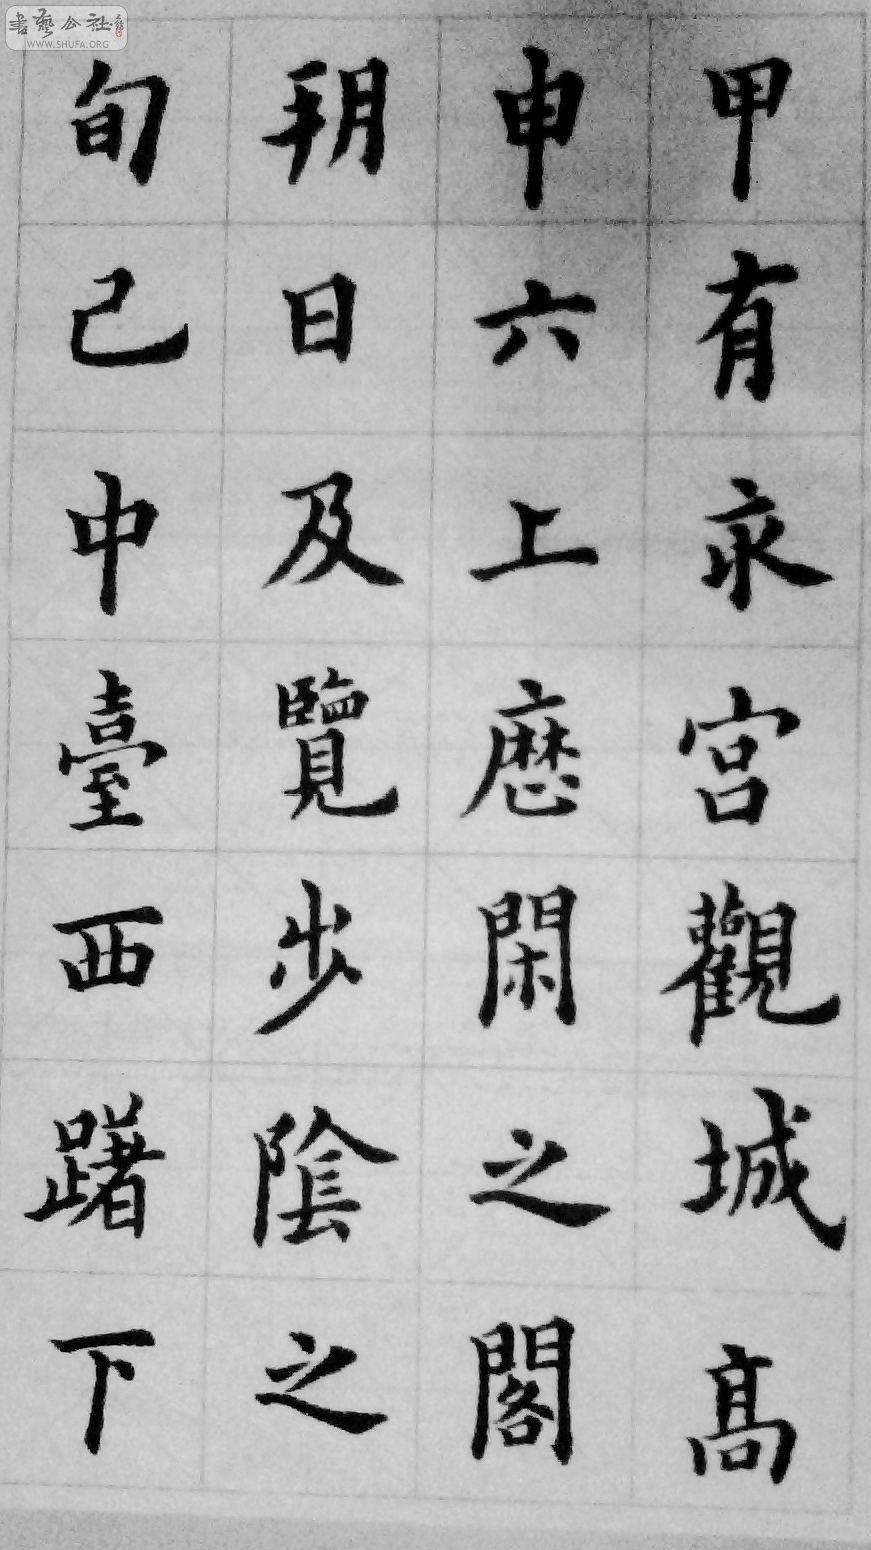 書藝公社
WWW.SHUFA.ORG
甲申朔旬
有六日己
亥上及中
宮歷覽臺
觀閑步西
城之陰躇
高閣之下